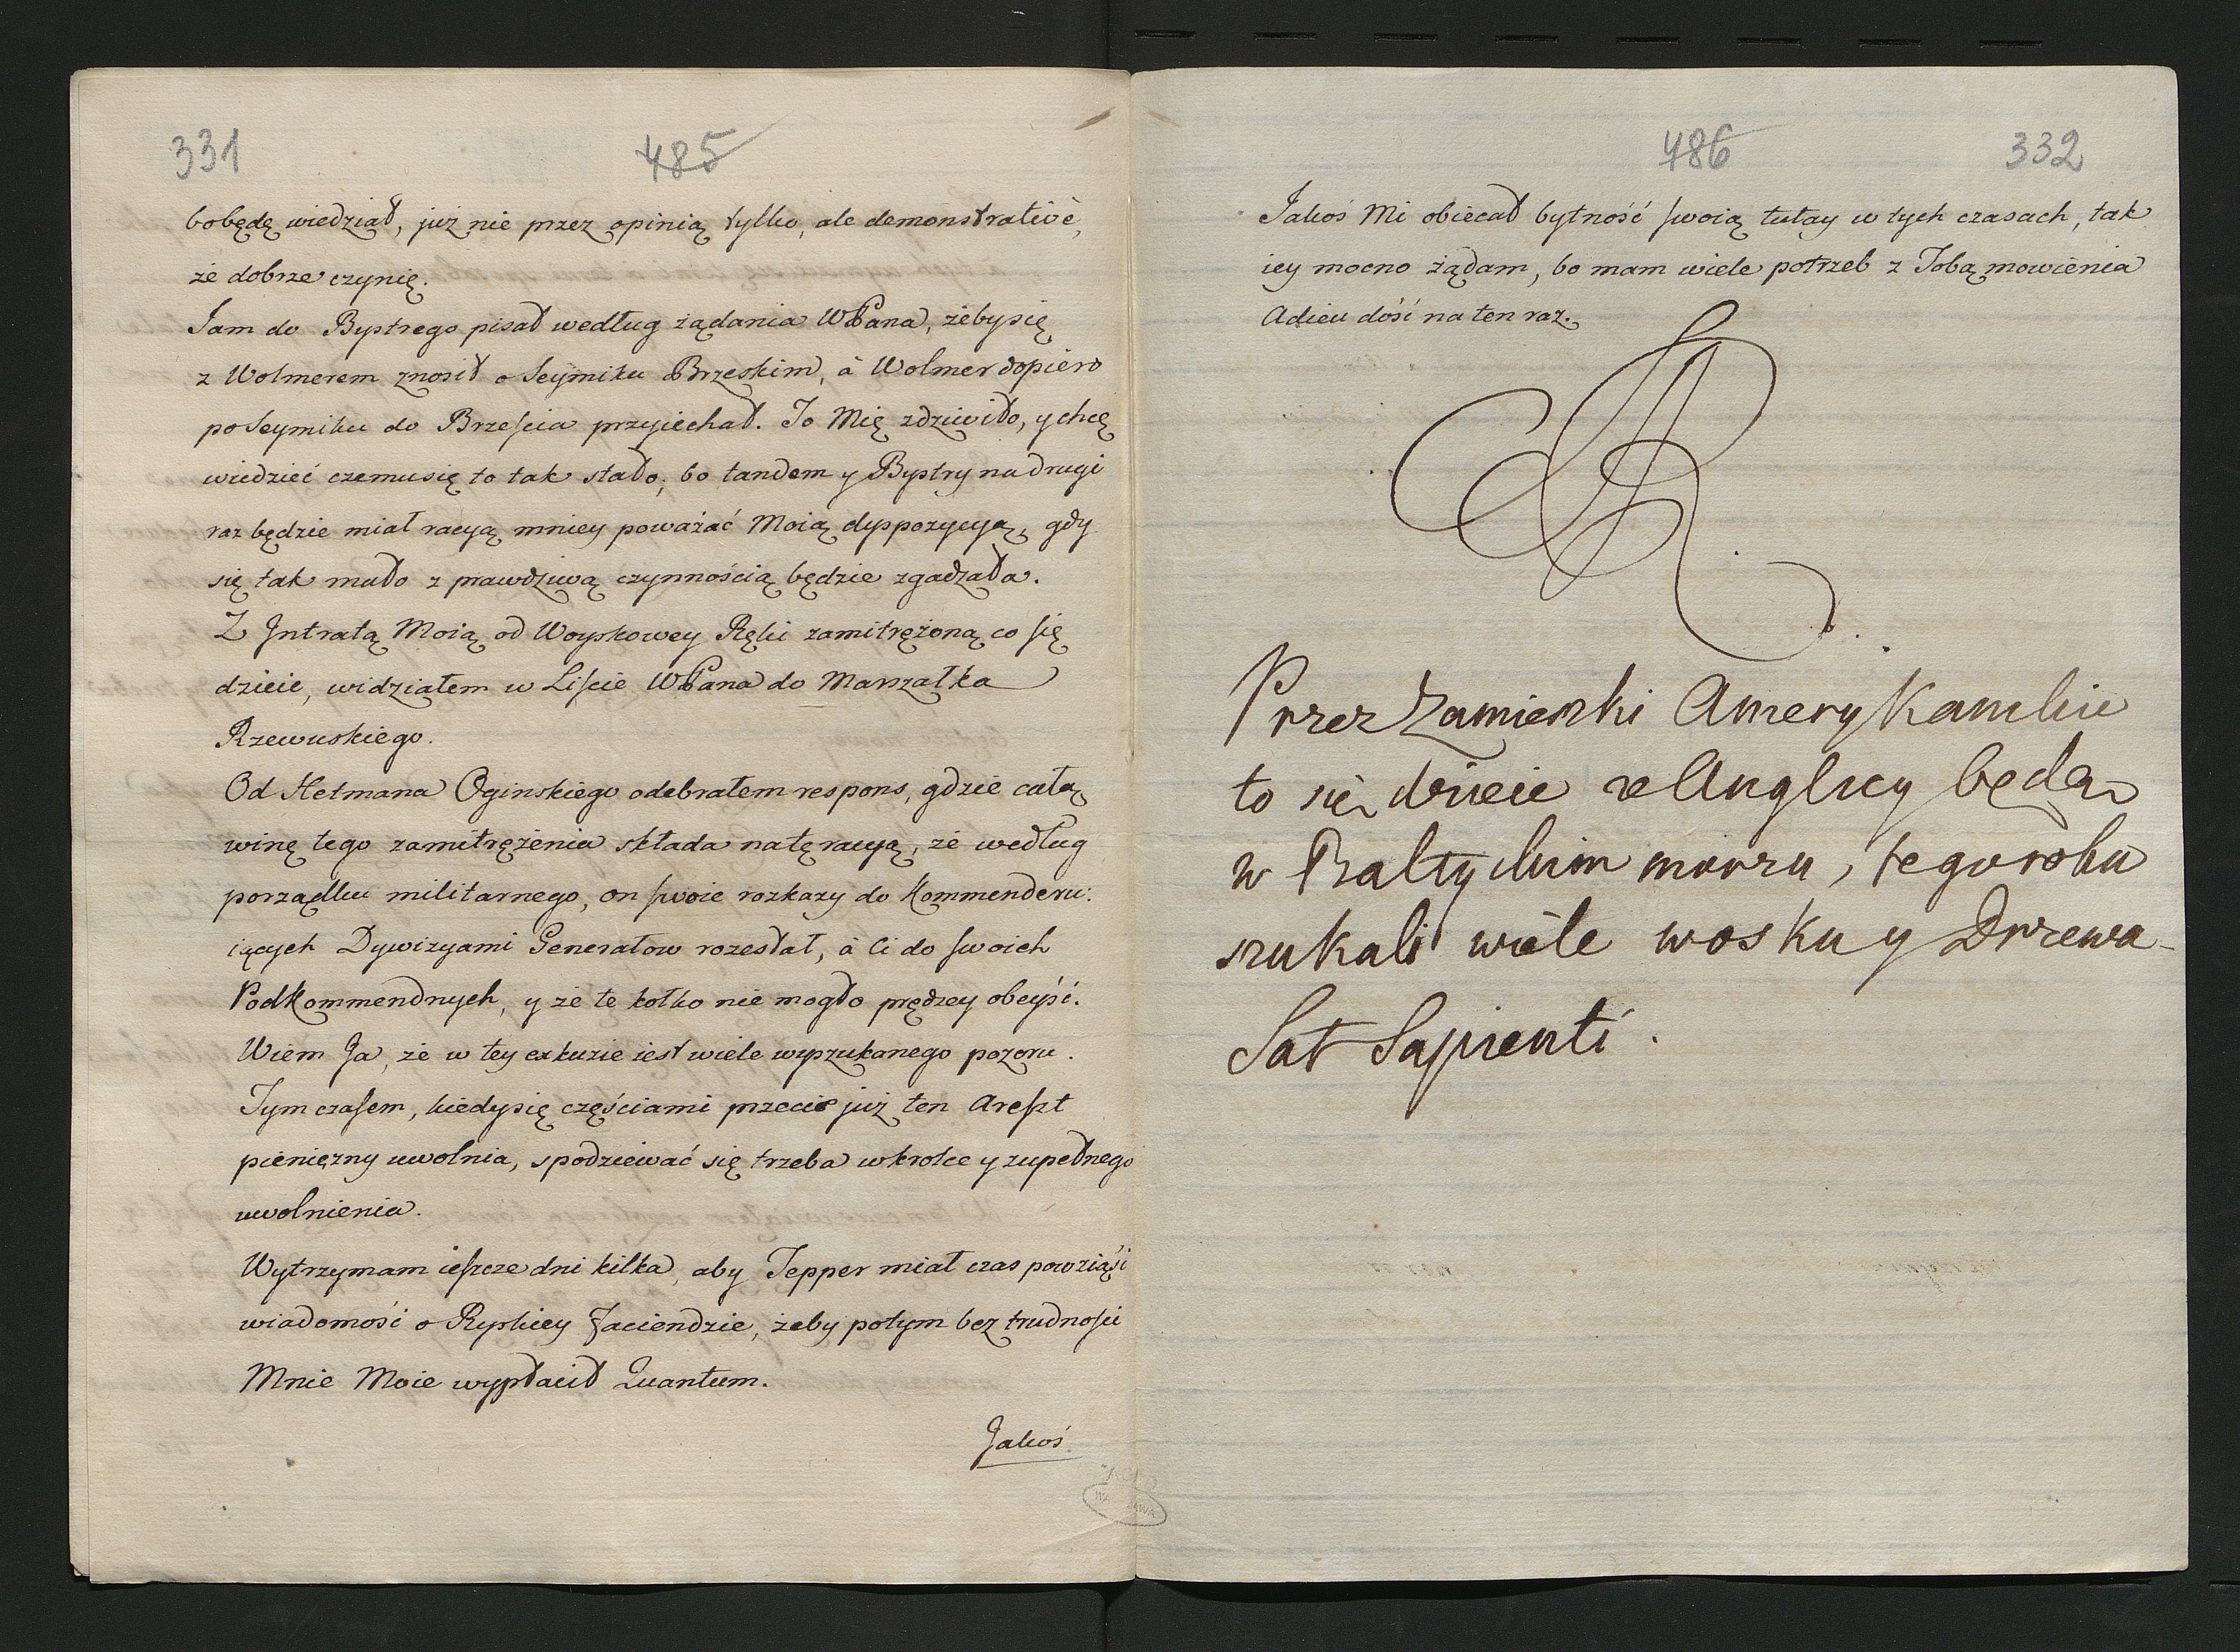 331
485
bobędę wiedział, już nie przez opinią tylko, ale demonstrativè,
że dobrze czynię.
Iam do Bystrego pisał według żądania WPana, żebysię
z Wolmerem znosił o Seymiku Brzeskim, à Wolmer dopiero
po Seymiku do Brześcia przyiechał. To Mię zdziwiło, y chcę
wiedzieć czemusię to tak stało, bo tandem y Bystry na drugi
raz będzie miał racyą mniey poważać Moią dyspozycyą, gdy
się tak mało z prawdziwą czynnością będzie zgadzała.
Z Intratą Moią od Woyskowey Ręki zamitrężoną co się
dzieie, widziałem w Liście WPana do Marszałka
Rzewuskiego.
Od Hetmana Oginskiego odebrałem respons, gdzie całą
winę tego zamitrężenia składa natę racyą, że według
porządku militarnego, on swoie rozkazy do Kommenderu:
iących Dywizyami Generałow rozesłał, à ci do swoich
Podkommendnych, y że te kołko nie mogło prędzey obeyść.
Wiem Ja, że w tey exkuzie iest wiele wyszukanego pozoru.
Tym czasem, kiedysię częściami przecie już ten Areszt
pieniężny uwolnia, spodziewać się trzeba wkrotce y zupełnego
uwolnienia.
Wytrzymam ieszcze dni kilka, aby Tepper miał czas powziąść
wiadomość o Ryskiey Faciendzie, żeby potym bez trudności
Mnie Moie wypłacił Quantum.
Jakoś
486
332
Jakoś Mi obiecał bytność swoią tutay w tych czasach, tak
iey mocno żądam, bo mam wiele potrzeb z Tobą mowienia
Adieu dość na ten raz.
SAR
Przez Zamieszki Amerykanskie
to się dzieie ze Anglicy będą
w Baltyckim morzu, tego roku
szukali wiele wosku y Drzewa
Sat Sapienti.